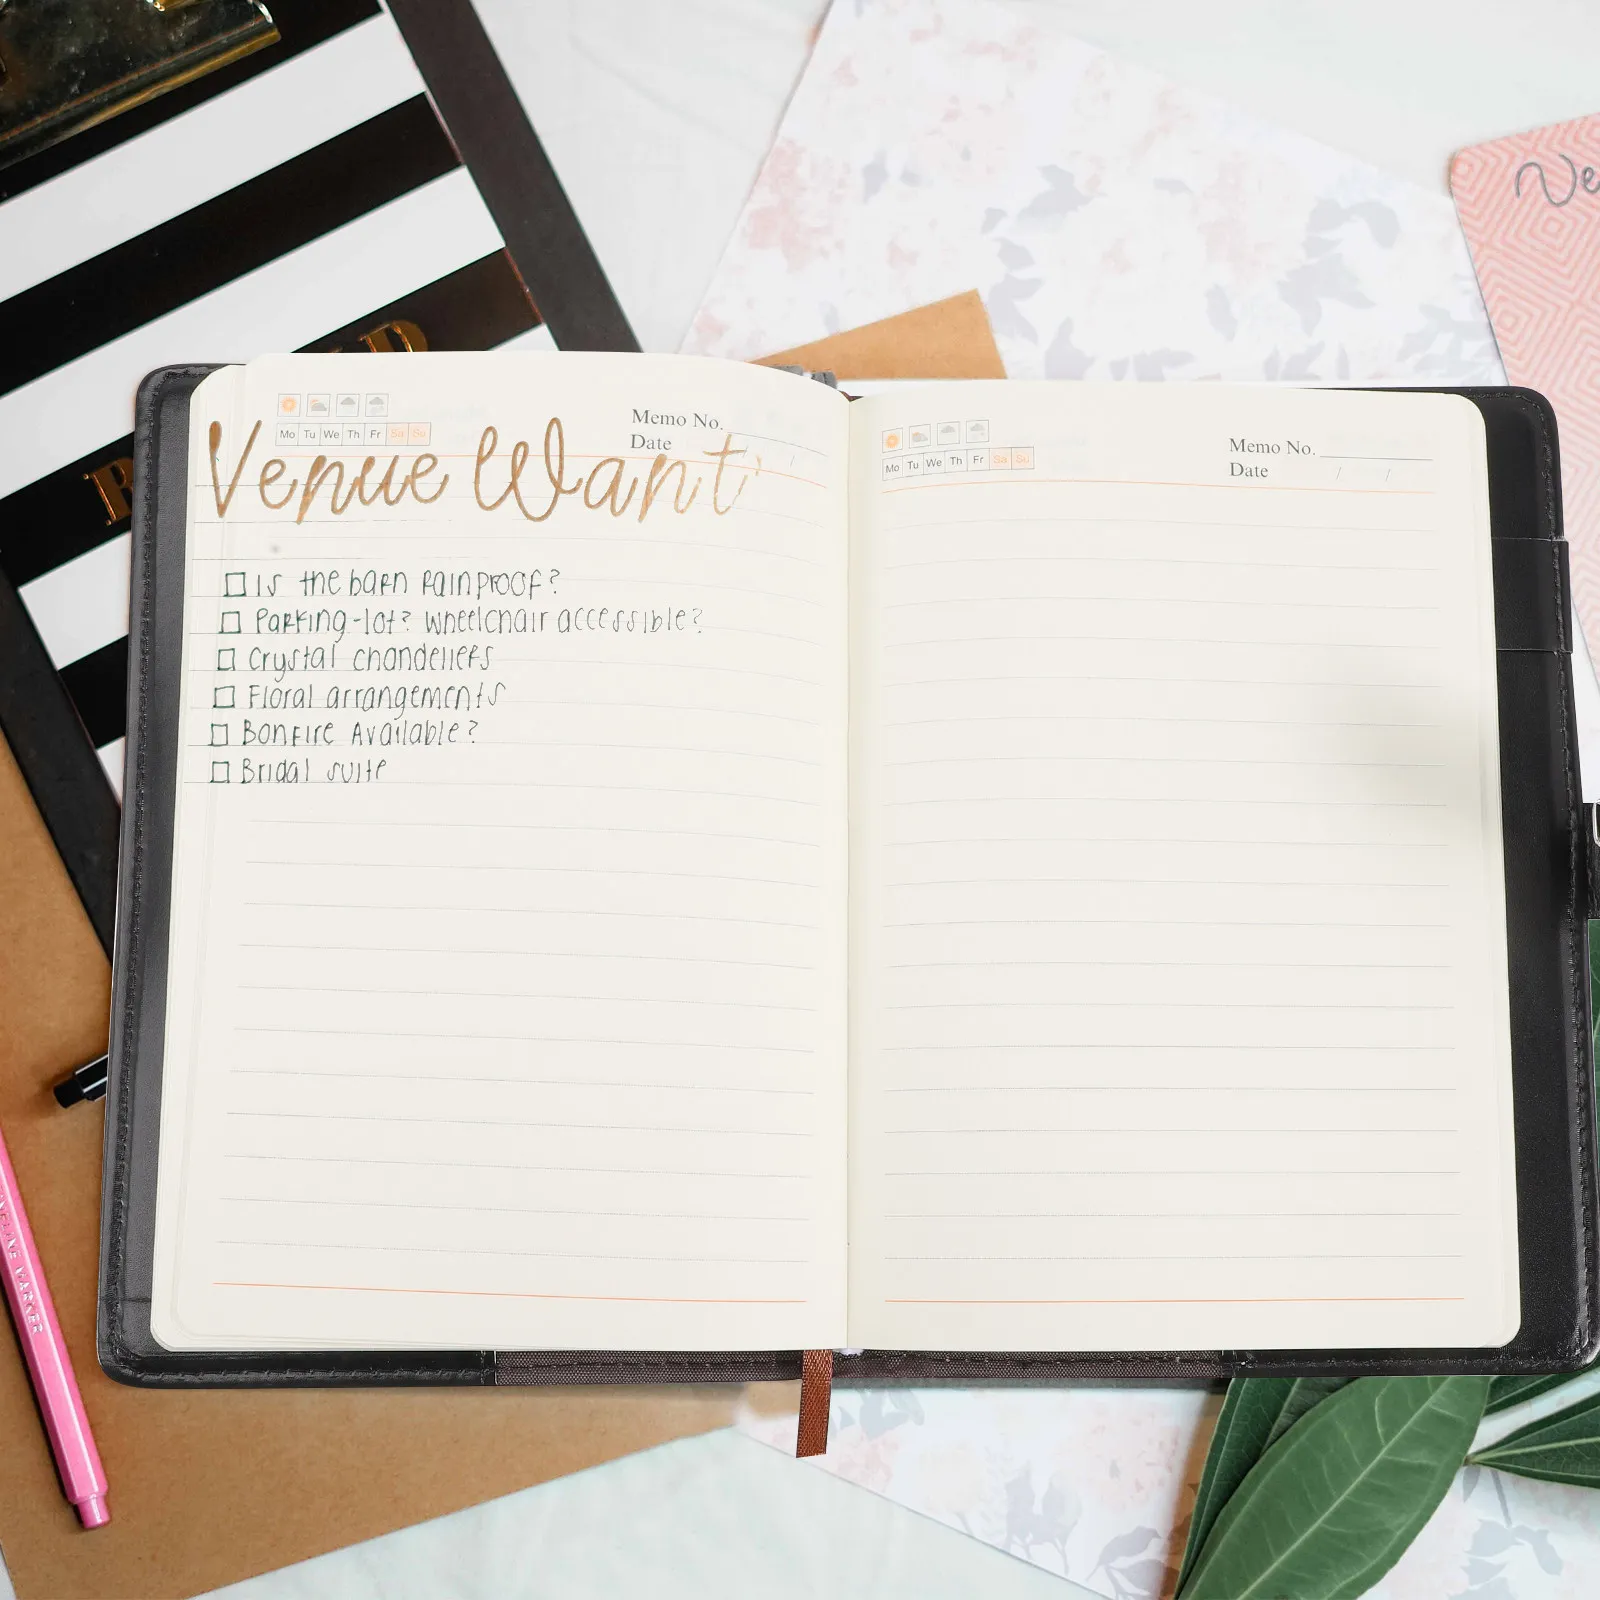 Ve
Mo Tu We Th Fr Sa Su
Memo No.
Date / /
Venue Want
Is the barn rainproof?
Parking-lot? wheelchair accessible?
Crystal chandeliers
Floral arrangements
Bonfire Available?
Bridal suite
Mo Tu We Th Fr Sa Su
Memo No.
Date / /
MARKER